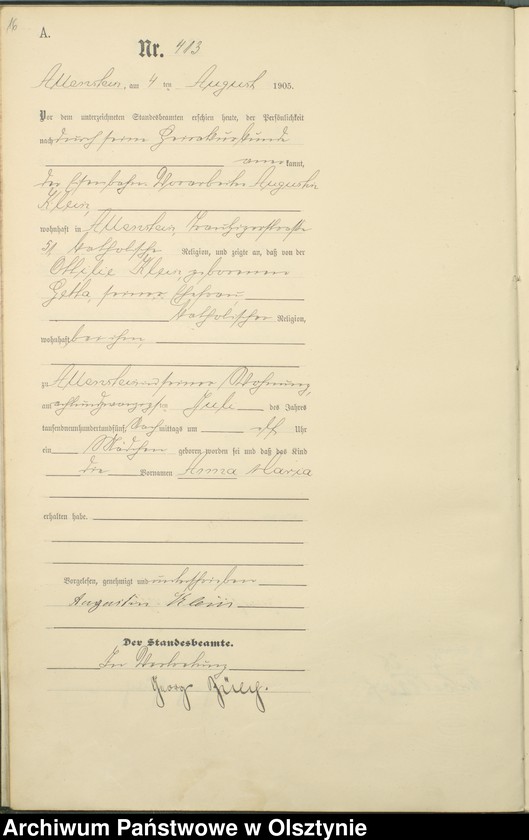 16
A.
Nr. 413
Allenstein, am 4 ten August 1905.
Vor dem unterzeichneten Standesbeamten erschien heute, der Persönlichkeit
nach durch seine Heiratsurkunde
anerkannt,
der Eisenbahn Vorarbeiter Augustin
Klein,
wohnhaft in Allenstein,
51 katholischer Religion, und zeigte an, daß von der
Ottilie Klein geborenen
seiner Ehefrau,
katholischer Religion,
wohnhaft bei ihm,
zu Allenstein in seiner Wohnung,
am achtundzwanzigsten Juli des Jahres
tausendneunhundertundfünf, Nachmittags um elf Uhr
ein Mädchen geboren worden sei und daß das Kind
die Vornamen Anna Maria
erhalten habe.
Vorgelesen, genehmigt und unterschrieben
Augustin Klein
Der Standesbeamte.
In Vertretung
Georg
Archiwum Państwowe w Olsztynie